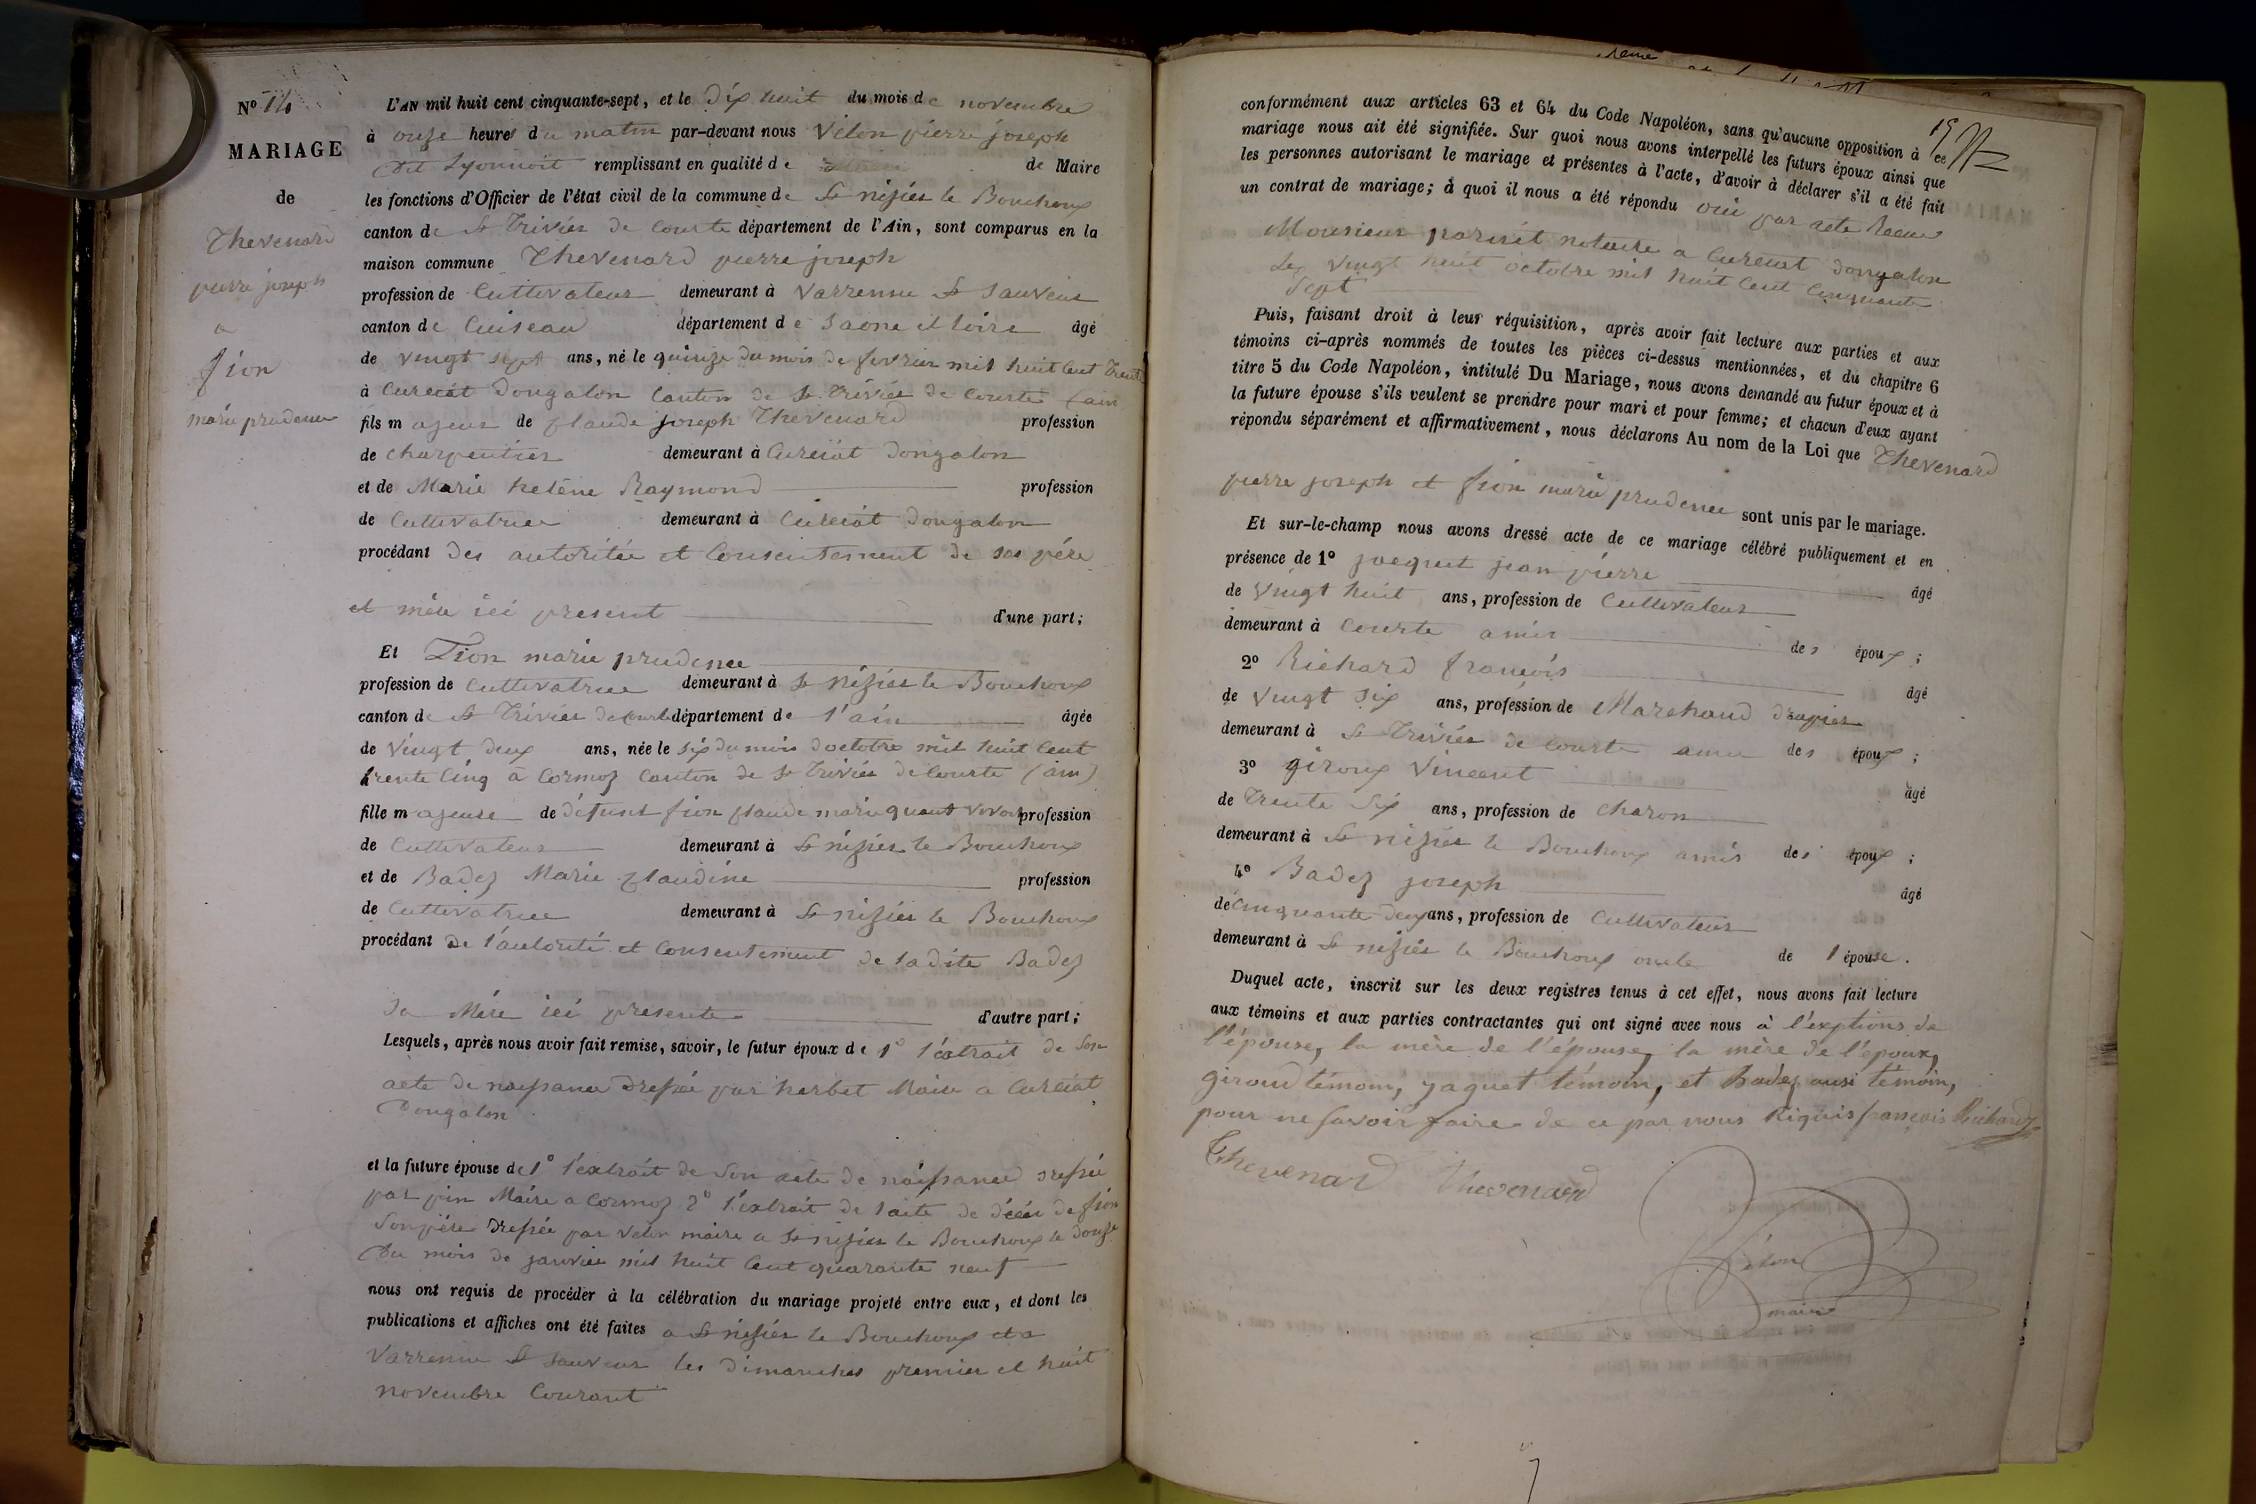 N° 14
MARIAGE
de
Thevenard
pierre joseph
a
fion
marie prudence
L'AN mil huit cent cinquante-sept, et le dix huit du mois de novembre
à onze heures du matin par-devant nous Vélon pierre joseph
dit Lyonnoit remplissant en qualité de de Maire
les fonctions d'Officier de l'état civil de la commune de St nizier le Bouchoux
canton de St Trivier de Courte département de l'Ain, sont comparus en la
maison commune Thevenard pierre joseph
profession de Cultivateur demeurant à Varrenne St Sauveur
canton de Cuiseau département de Saone et loire âgé
de vingt sept ans, né le quinze du mois de fevrier mil huit cent Trente
à Curciat Dongalon Canton de St Trivier de Courte (ain
fils majeur de flaude joseph Thevenard profession
de charpentier demeurant à Curciat Dongalon
et de Marie helène Raymond profession
de Cultivatrice demeurant à Curciat Dongalon
procédant des autoritée et Consentement de ses pére
et mére ici present d'une part;
Et Fion marie prudence
profession de Cultivatrice demeurant à St Nizier le Bouchoux
canton de St Trivier de Courte département de l'ain âgée
de Vingt deux ans, née le six du mois doctobre mil huit Cent
trente Cinq à Cormoz Canton de St Trivier de Courte (ain)
fille majeure de défunt fion flaude marie quant vivoit profession
de Cultivateur demeurant à St nizier le Bouchoux
et de Badez Marie flaudine profession
de Cultivatrice demeurant à St nizier le Bouchoux
procédant de l'autorité et Consentement de ladite Badez
Sa Mére ici présente d'autre part;
Lesquels, après nous avoir fait remise, savoir, le futur époux de 1° l'extrait de Son
acte de naissance dressée par herbet Maire a Curciat
Dongalon
et la future épouse de 1° l'extrait de Son acte de naissance dressée
par pin Maire a Cormoz 2° l'extrait de l'acte de décés de fion
Son pére dressée par Velon maire a St nizier le Bouchoux le douze
du mois de janvier mil huit Cent quarante neuf
nous ont requis de procéder à la célébration du mariage projeté entre eux, et dont les
publications et affiches ont été faites a St nizier le Bouchoux et a
Varrenne St Sauveur les dimanches premier et huit
novembre Courant
15
conformément aux articles 63 et 64 du Code Napoléon, sans qu'aucune opposition à ce
mariage nous ait été signifiée. Sur quoi nous avons interpellé les futurs époux ainsi que
les personnes autorisant le mariage et présentes à l'acte, d'avoir à déclarer s'il a été fait
un contrat de mariage; à quoi il nous a été répondu oui par acte Recu
Monsieur notaire a Curciat dongalon
Le vingt huit octobre mil huit Cent Cinquante
Sept
Puis, faisant droit à leur réquisition, après avoir fait lecture aux parties et aux
témoins ci-après nommés de toutes les pièces ci-dessus mentionnées, et du chapitre 6
titre 5 du Code Napoléon, intitulé Du Mariage, nous avons demandé au futur époux et à
la future épouse s'ils veulent se prendre pour mari et pour femme; et chacun d'eux ayant
répondu séparément et affirmativement, nous déclarons Au nom de la Loi que Thevenard
pierre joseph et fion marie prudence sont unis par le mariage.
Et sur-le-champ nous avons dressé acte de ce mariage célébré publiquement et en
présence de 1° jacquet jean pierre âgé
de Vingt huit ans, profession de Cultivateur
demeurant à Courte amis des époux;
2° Richard françois âgé
de Vingt six ans, profession de Marchand drapier
demeurant à St Trivier de Courte ami des époux;
3° giroux Vincent âgé
de Trente Six ans, profession de Charon
demeurant à St nizier le Bouchoux amis des époux;
4° Badez joseph âgé
de Cinquante deux ans, profession de Cultivateur
demeurant à St nizier le Bouchoux oncle de l'épouse.
Duquel acte, inscrit sur les deux registres tenus à cet effet, nous avons fait lecture
aux témoins et aux parties contractantes qui ont signé avec nous à l'exptions de
l'épouse, la mère de l'épouse, la mère de l'époux,
giroud témoin, yaquet témoin, et Badez ausi témoin,
pour ne savoir faire de ce par nous Riquis françois Richard
Thevenard Thevenard
Vélon
maire